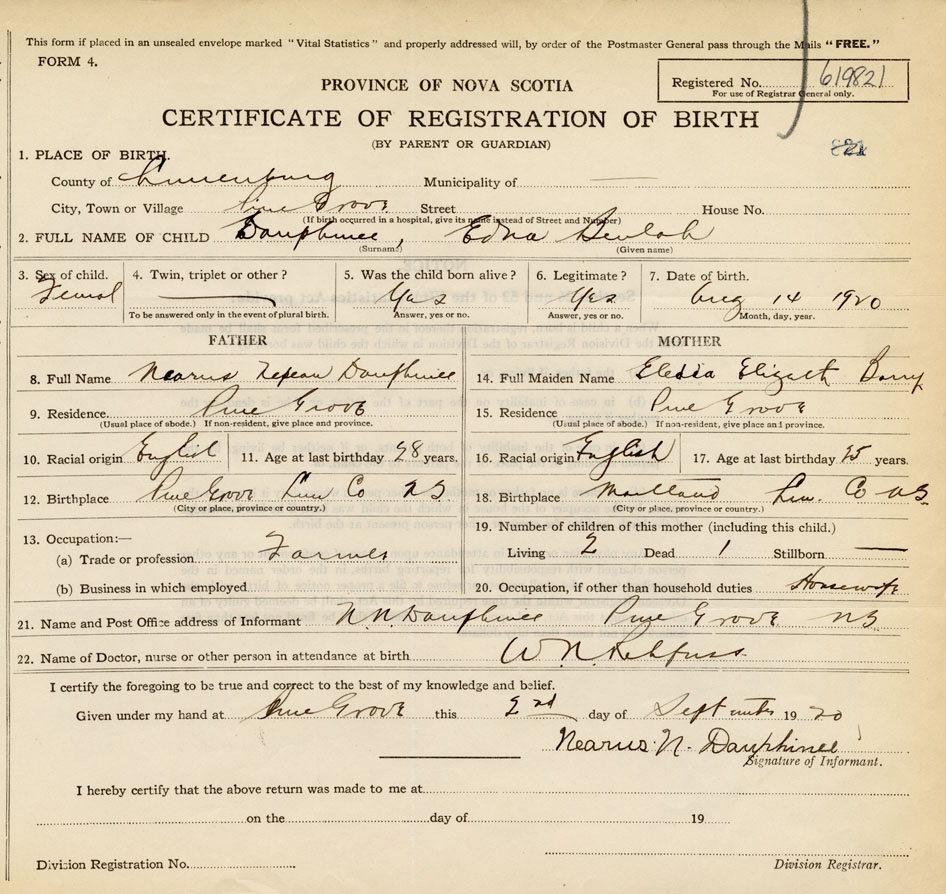 This form if placed in an unsealed envelope marked "Vital Statistics" and properly addressed will, by order of the Postmaster General pass through the Mails "FREE."
FORM 4.
Registered No. 619821
For use of Registrar General only.
PROVINCE OF NOVA SCOTIA
CERTIFICATE OF REGISTRATION OF BIRTH
(BY PARENT OR GUARDIAN)
821
1. PLACE OF BIRTH.
County of Lunenburg Municipality of —
City, Town or Village Pine Grove Street House No.
(If birth occurred in a hospital, give its name instead of Street and Number)
2. FULL NAME OF CHILD Dauphinee, Edna Beulah
(Surname) (Given name)
3. Sex of child. 4. Twin, triplet or other? 5. Was the child born alive? 6. Legitimate? 7. Date of birth.
Femal — Yes Yes Aug 14 1920
To be answered only in the event of plural birth. Answer, yes or no. Answer, yes or no. Month, day, year.
FATHER MOTHER
8. Full Name Nearus Dauphinee 14. Full Maiden Name Elizath
9. Residence Pine Grove 15. Residence Pine Grove
(Usual place of abode.) If non-resident, give place and province. (Usual place of abode.) If non-resident, give place and province.
10. Racial origin English 11. Age at last birthday 28 years. 16. Racial origin English 17. Age at last birthday 25 years.
12. Birthplace Pine Grove Lun Co NS. 18. Birthplace Maitland Lun. Co NS.
(City or place, province or country.) (City or place, province or country.)
19. Number of children of this mother (including this child.)
13. Occupation:—
(a) Trade or profession Farmer Living 2 Dead 1 Stillborn —
(b) Business in which employed 20. Occupation, if other than household duties Housewife
21. Name and Post Office address of Informant N N Dauphinee Pine Grove NS
22. Name of Doctor, nurse or other person in attendance at birth W N Rehfuss
I certify the foregoing to be true and correct to the best of my knowledge and belief.
Given under my hand at Pine Grove this 2nd day of September 1920
Nearus N. Dauphinee
Signature of Informant.
I hereby certify that the above return was made to me at
on the day of 19
Division Registration No.
Division Registrar.